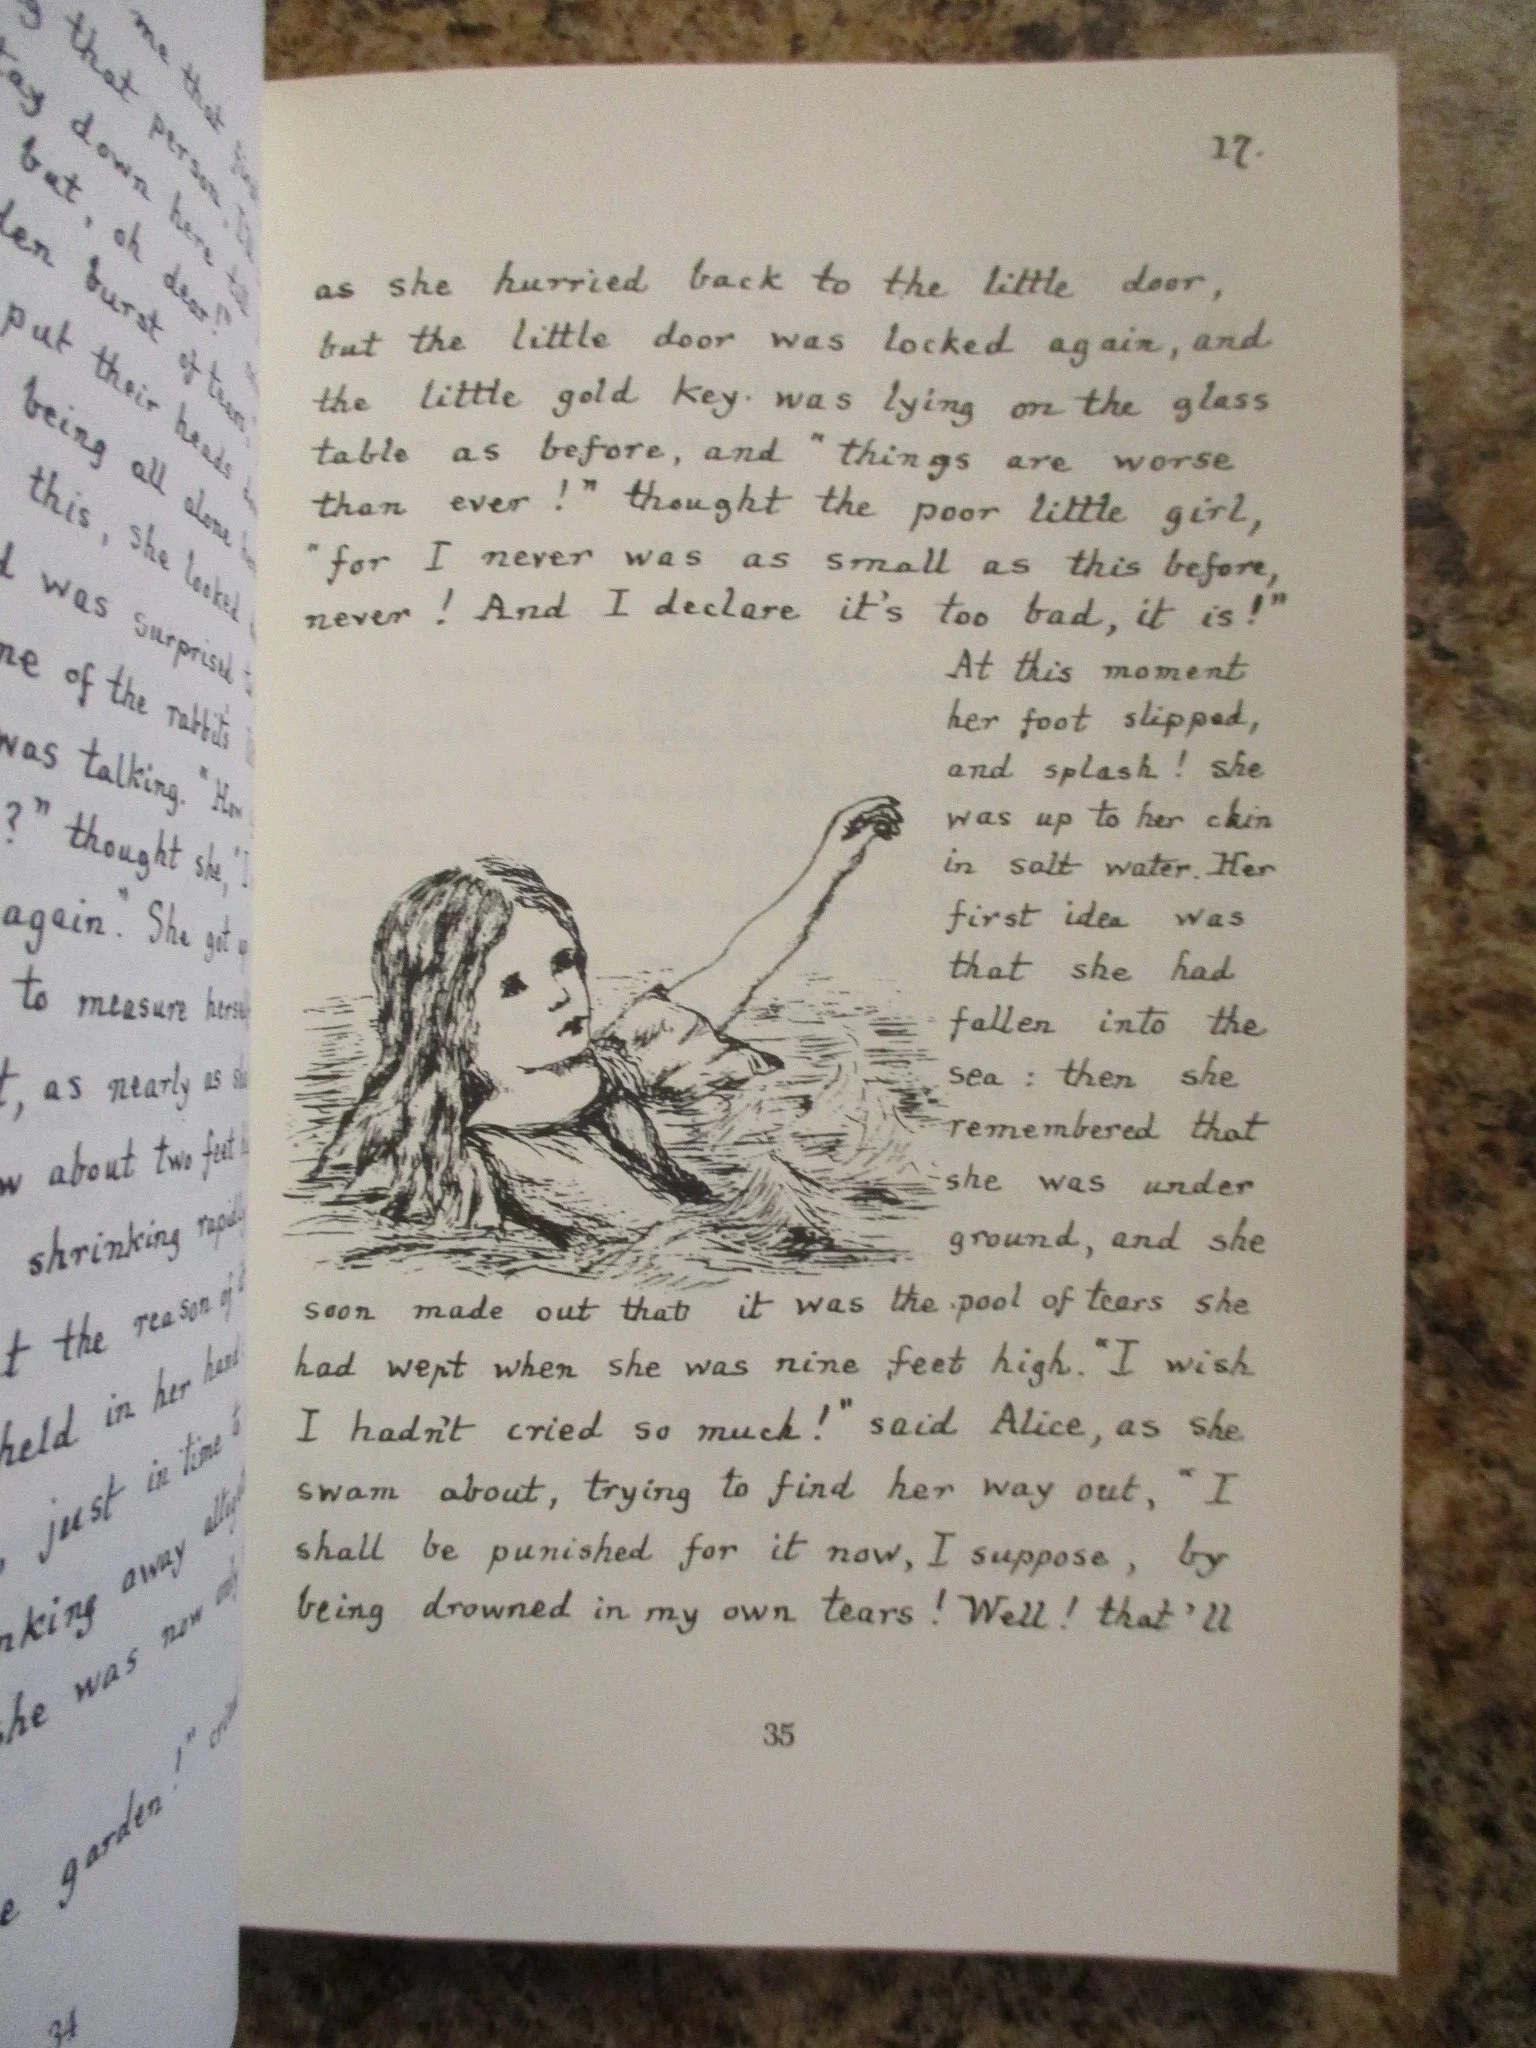 me that
that person, I'll
down here till
but, oh dear!"
burst of tears,
put their heads
being all alone
this, she looked
was surprised
of the rabbit's
was talking. "How
?" thought she, "I
again." She got up
to measure
as nearly as
about two feet
shrinking rapidly
the reason of
held in her hand
just in time
away
she was now only
garden!"
34
17.
as she hurried back to the little door,
but the little door was locked again, and
the little gold key was lying on the glass
table as before, and "things are worse
than ever!" thought the poor little girl,
"for I never was as small as this before,
never! And I declare it's too bad, it is!"
At this moment
her foot slipped,
and splash! she
was up to her chin
in salt water. Her
first idea was
that she had
fallen into the
sea: then she
remembered that
she was under
ground, and she
soon made out that it was the pool of tears she
had wept when she was nine feet high. "I wish
I hadn't cried so much!" said Alice, as she
swam about, trying to find her way out, "I
shall be punished for it now, I suppose, by
being drowned in my own tears! Well! that'll
35